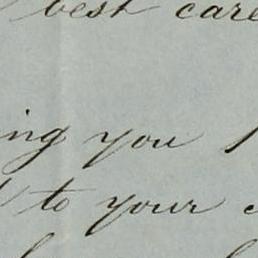 best care
ing you
to your